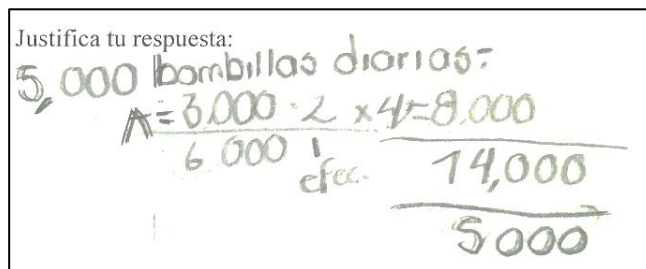 Justifica tu respuesta:
5,000 bombillas diarias:
A = 3.000 · 2 x 4 = 8.000
6 000 1 efec. 14,000
5000